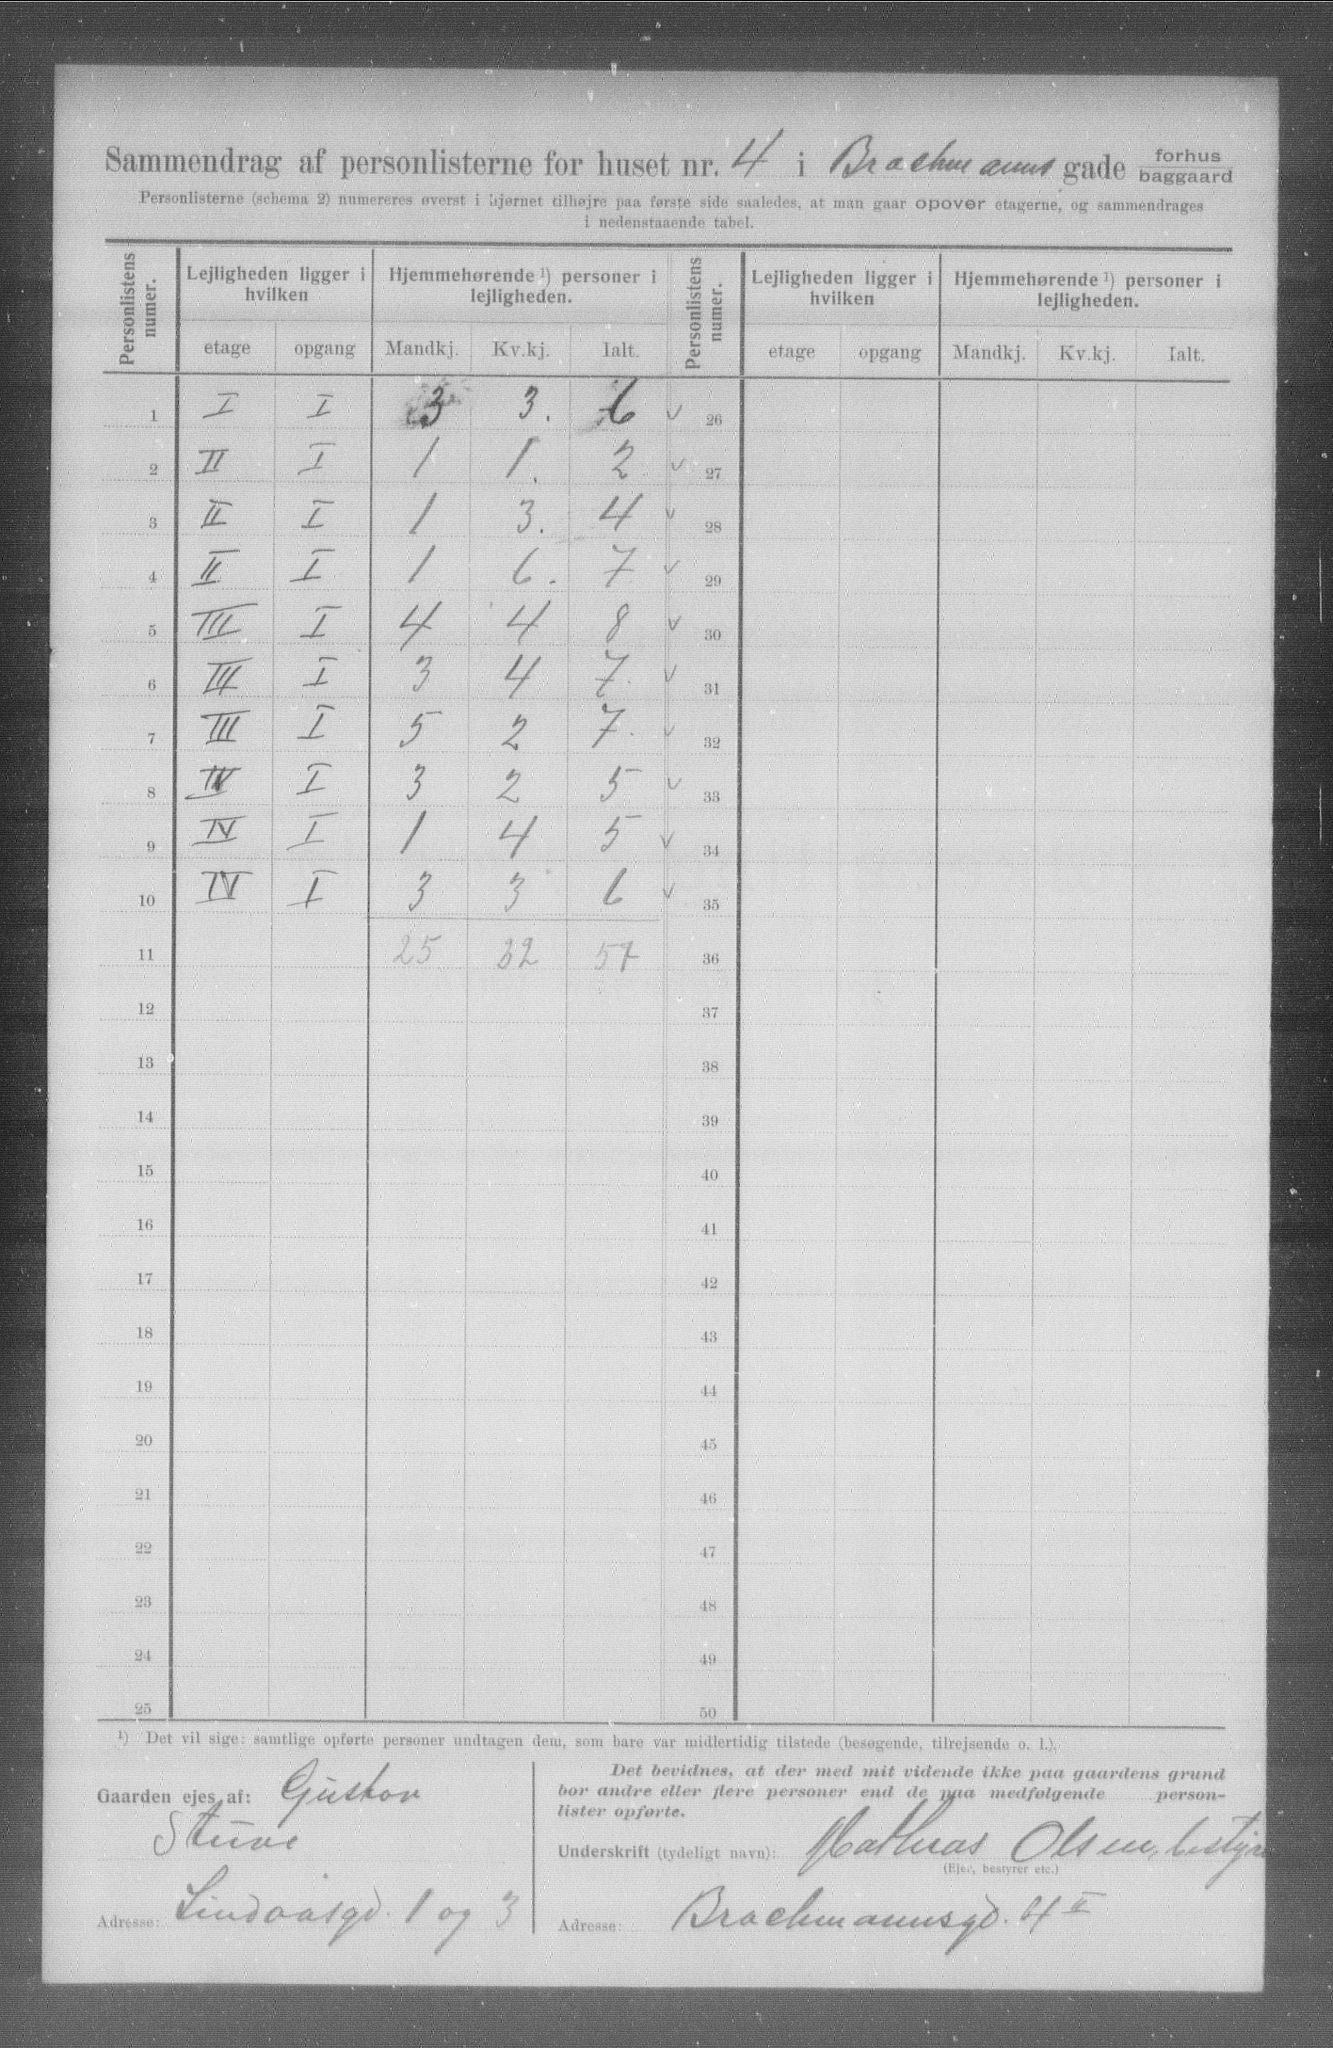 Sammendrag af personlisterne for huset nr. 4 i Brochmanns gade forhus baggaard
Personlisterne (schema 2) numereres øverst i hjørnet tilhøjre paa første side saaledes, at man gaar opover etagerne, og sammendrages
i nedenstaaende tabel.
Personlistens numer. Lejligheden ligger i hvilken Hjemmehørende ¹) personer i lejligheden. Personlistens numer. Lejligheden ligger i hvilken Hjemmehørende ¹) personer i lejligheden.
etage opgang Mandkj. Kv.kj. Ialt. etage opgang Mandkj. Kv.kj. Ialt.
1 I I 3 3. 6 v 26
2 II I 1 1. 2 v 27
3 II I 1 3. 4 v 28
4 II I 1 6. 7 v 29
5 III I 4 4 8 v 30
6 III I 3 4 7. v 31
7 III I 5 2 7. v 32
8 IV I 3 2 5 v 33
9 IV I 1 4 5 v 34
10 IV I 3 3 6 v 35
11 25 32 57 36
12 37
13 38
14 39
15 40
16 41
17 42
18 43
19 44
20 45
21 46
22 47
23 48
24 49
25 50
¹) Det vil sige: samtlige opførte personer undtagen dem, som bare var midlertidig tilstede (besøgende, tilrejsende o. l.).
Gaarden ejes af: Gustav
Stuve
Adresse: Lindaasgd. 1 og 3
Det bevidnes, at der med mit vidende ikke paa gaardens grund
bor andre eller flere personer end de paa medfølgende person-
lister opførte.
Underskrift (tydeligt navn): Mathias Olsen, bestyre
(Ejer, bestyrer etc.)
Adresse: Brochmannsgd. 4 II